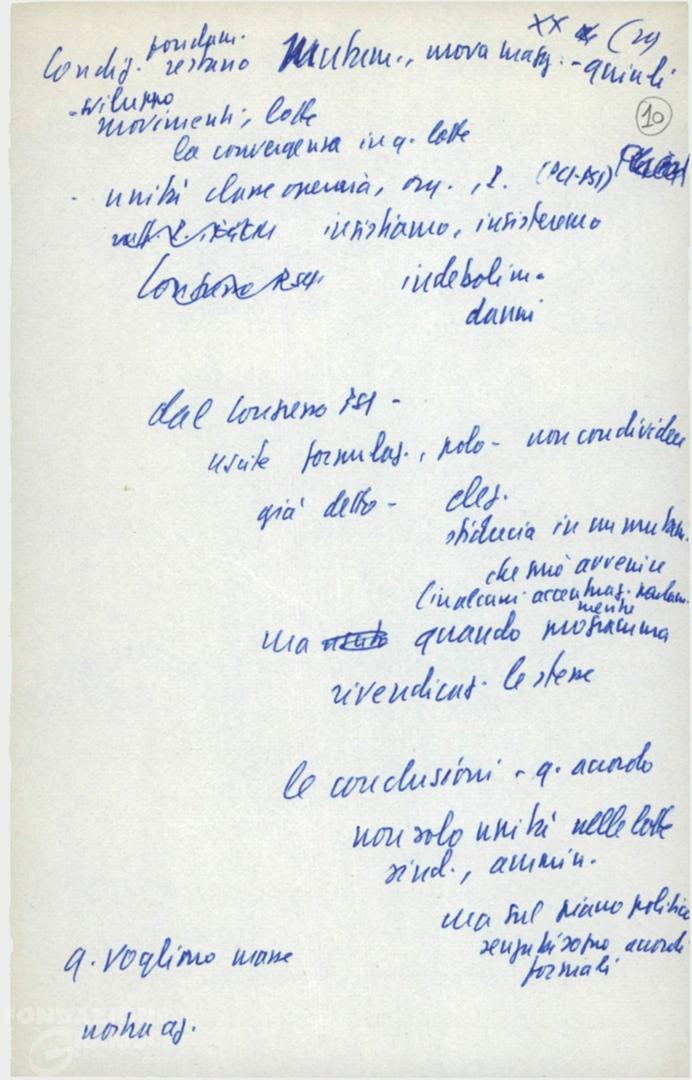 XX (29
fondam.
Condiz. restano Mutam., nuova magg. - quindi
10
- sviluppo
movimenti, lotte
la convergenza in q. lotte
- unità classe operaia, org., (PCI-PSI)
insistiamo, insisteremo
Congresso PSI indebolim.
danni
dal Congresso PSI -
uscite formulaz., polo - non condividere
già detto - elez.
sfiducia in un mutam.
che può avvenire
(in alcuni accentuaz. parlam.
mente
ma quando programma
rivendicaz. le stesse
le conclusioni - q. accordo
non solo unità nelle lotte
sind., ammin.
ma sul piano politico
senza bisogno accordi
formali
q. vogliono masse
nostra az.
FONDAZIONE